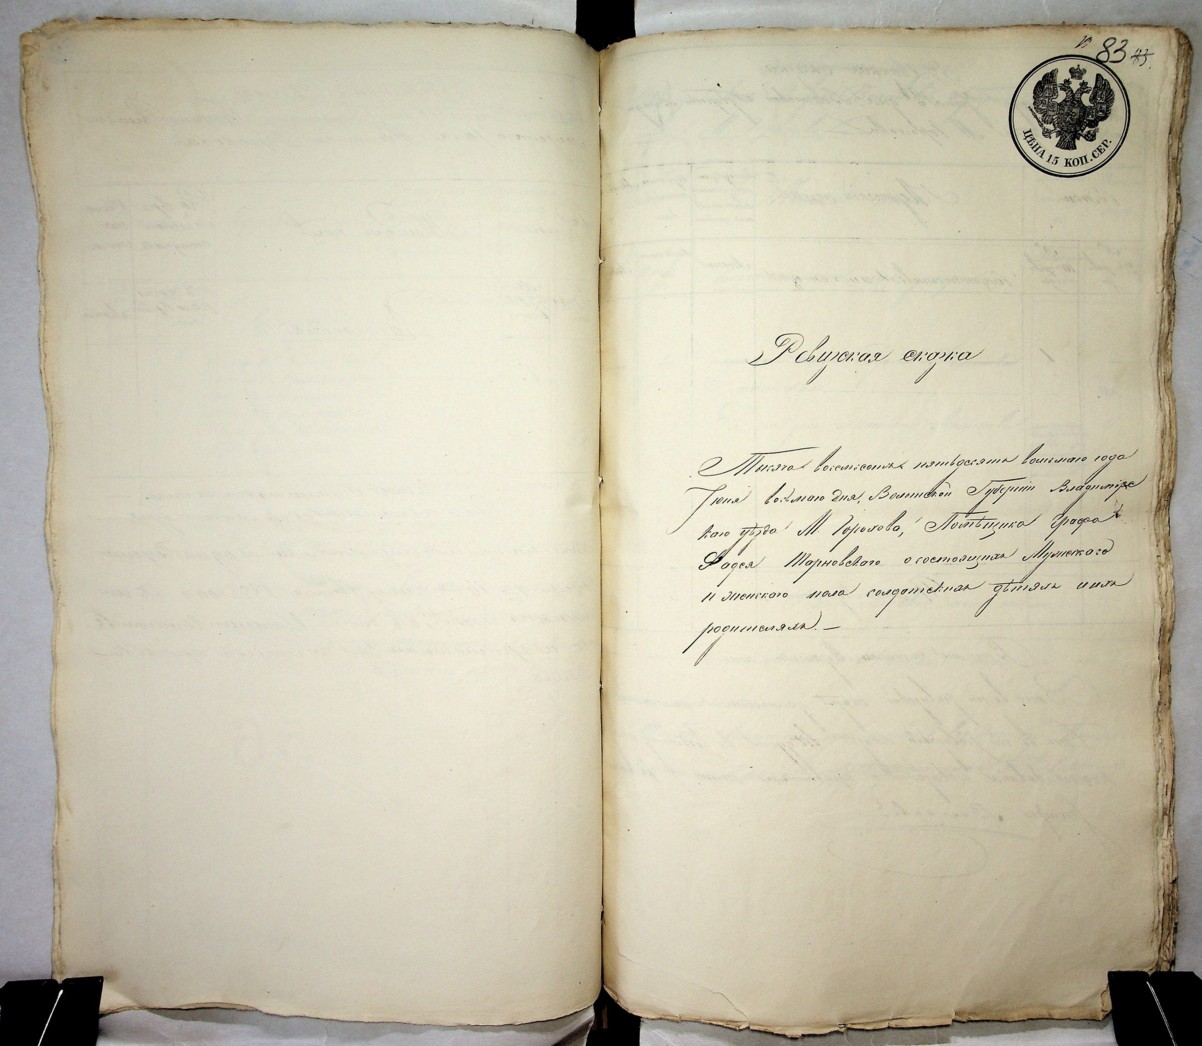 83
ЦѢНА 15 КОП. СЕР.
Ревизская сказка
Тысяча восемьсотъ пятьдесятъ восьмаго года
Іюня восьмаго дня, Волынской Губерніи Владимірс
каго уѣзда М. Горохова, Помѣщика Графа
Фадея Тарновскаго о состоящихъ Мужскаго
и женскаго пола солдатскихъ дѣтяхъ и ихъ
родителяхъ. —